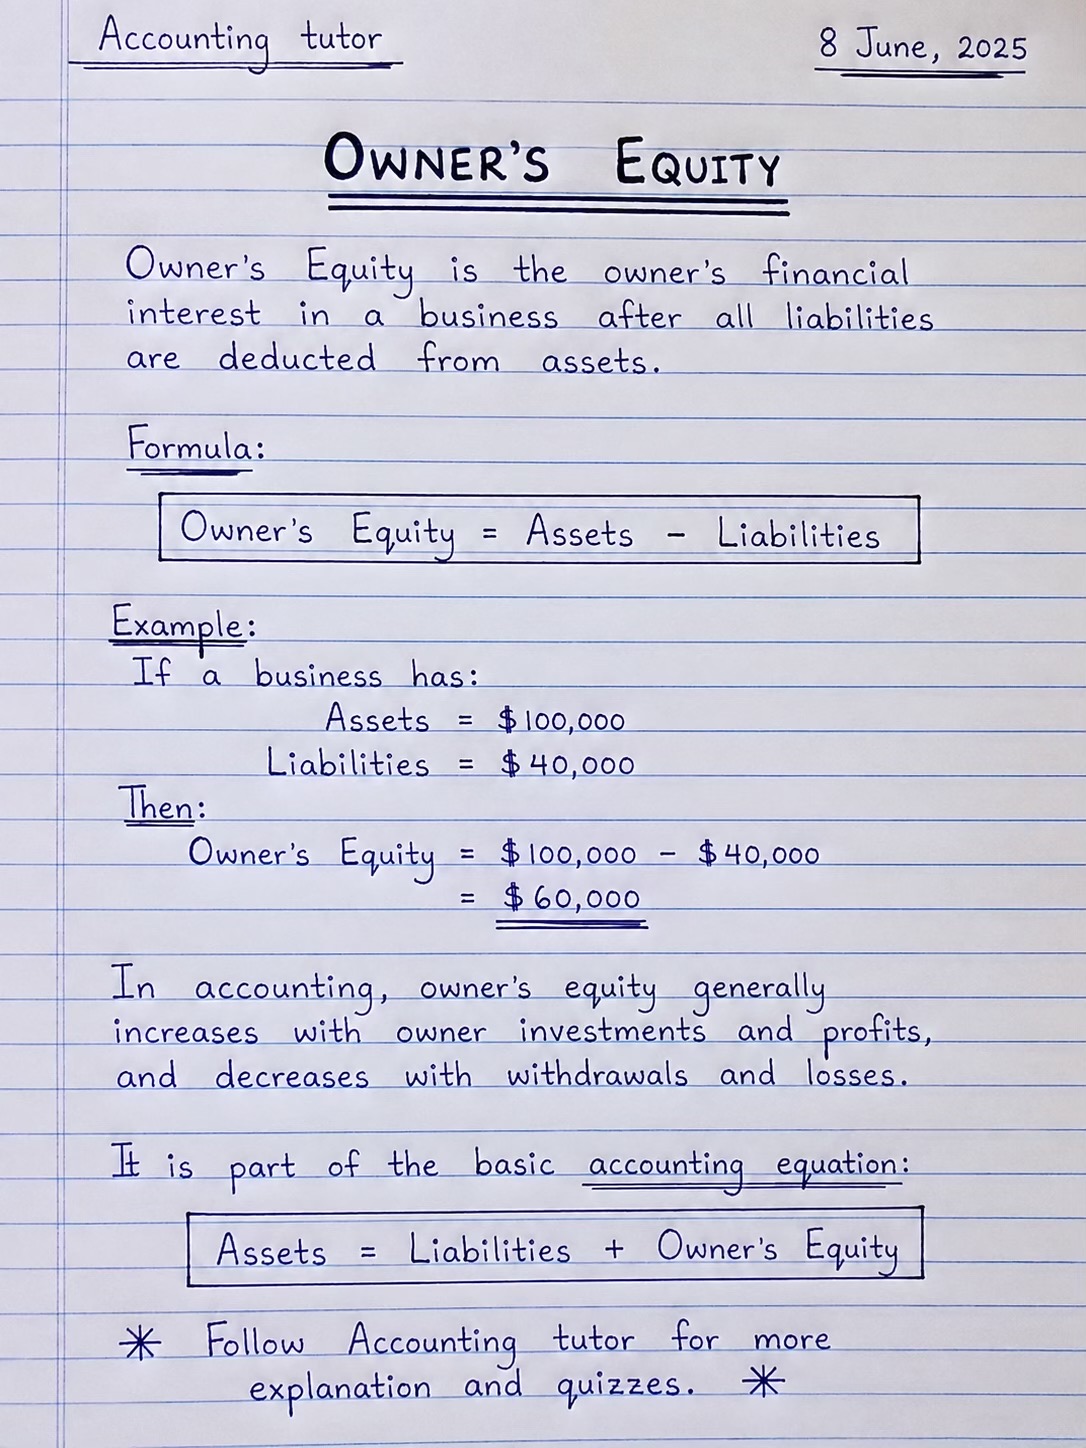 Accounting tutor
8 June, 2025
OWNER'S EQUITY
Owner's Equity is the owner's financial
interest in a business after all liabilities
are deducted from assets.
Formula:
Owner's Equity = Assets - Liabilities
Example:
If a business has:
Assets = $100,000
Liabilities = $40,000
Then:
Owner's Equity = $100,000 - $40,000
= $60,000
In accounting, owner's equity generally
increases with owner investments and profits,
and decreases with withdrawals and losses.
It is part of the basic accounting equation:
Assets = Liabilities + Owner's Equity
* Follow Accounting tutor for more
explanation and quizzes. *